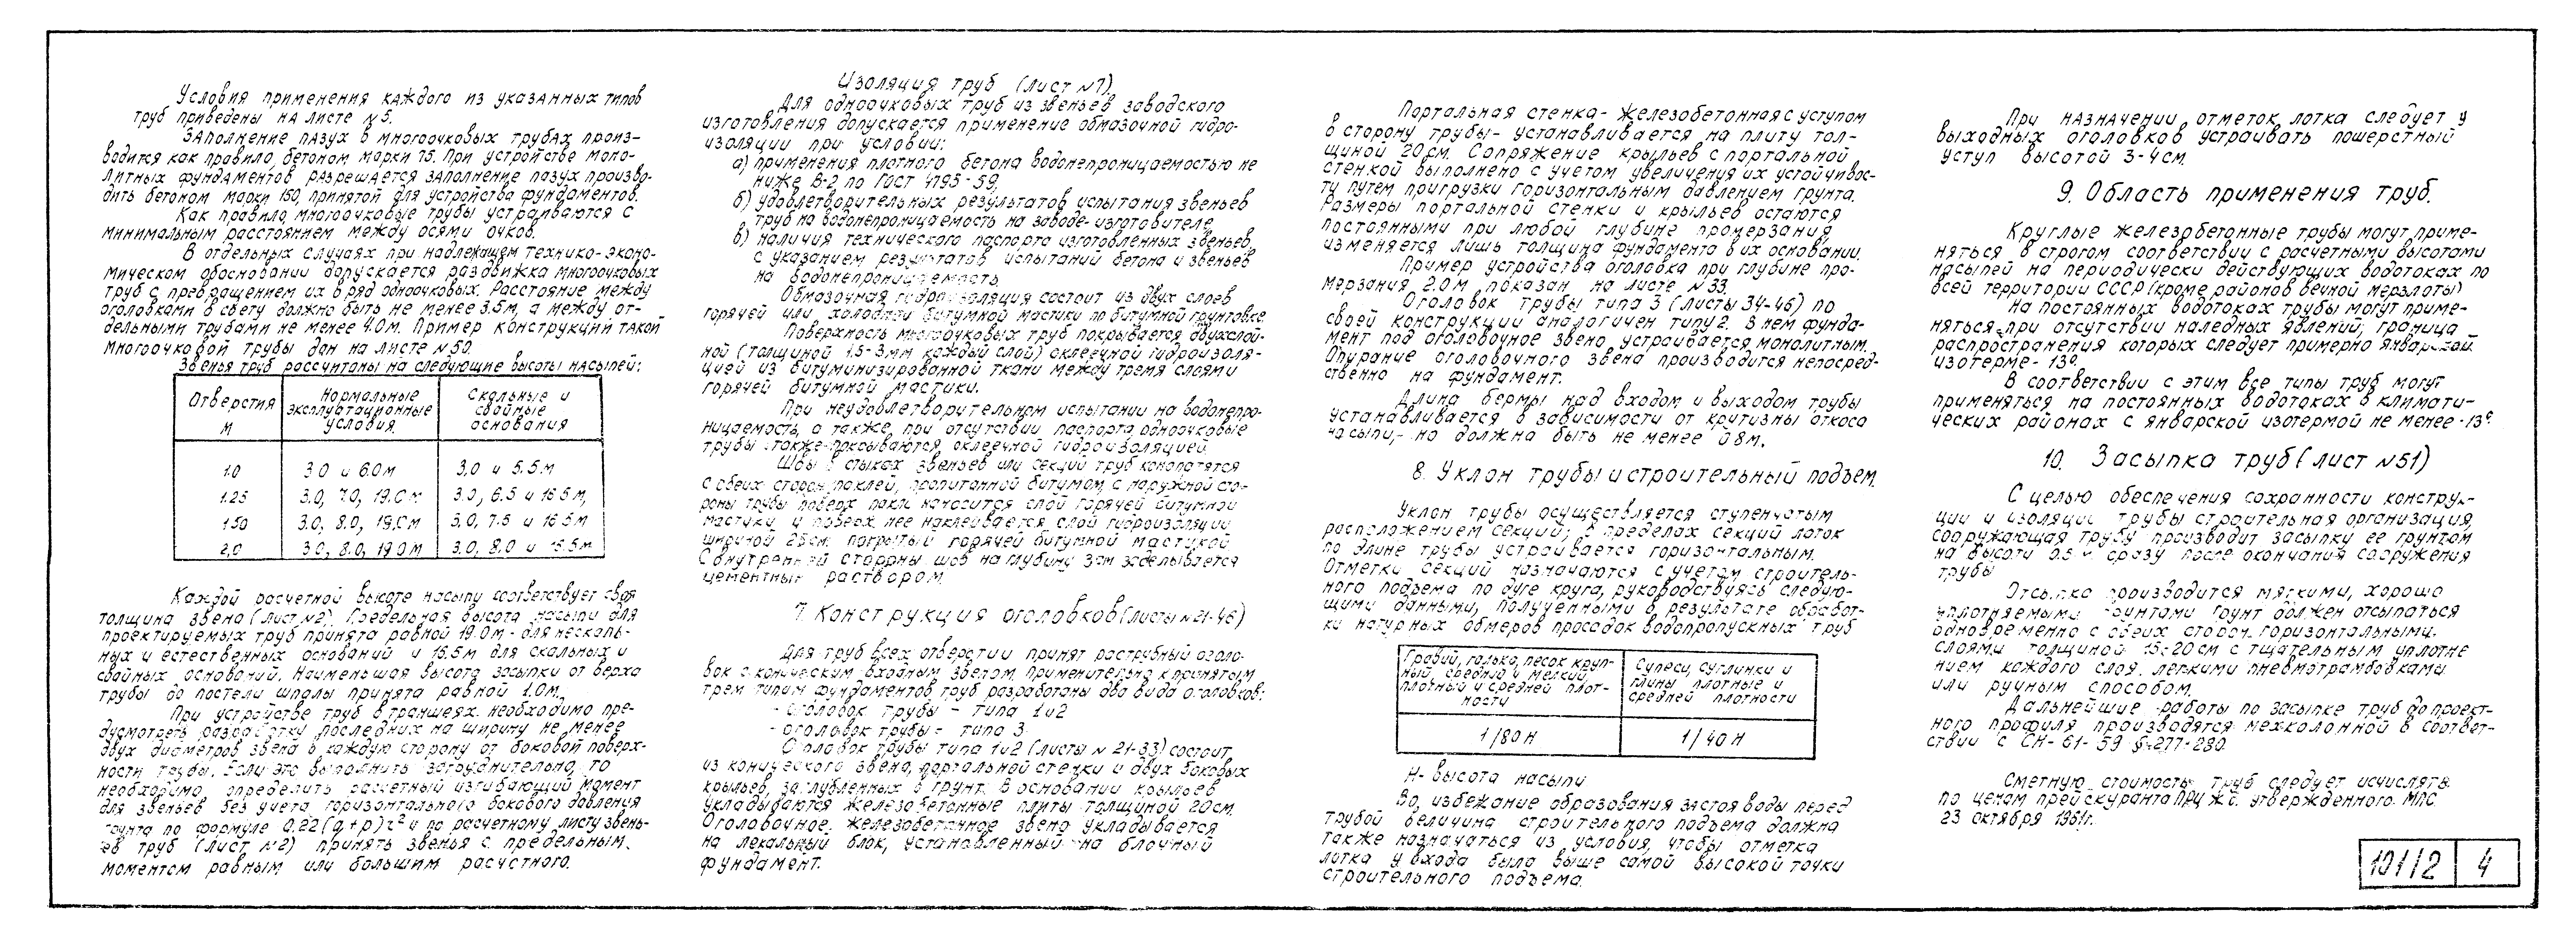 Условия применения каждого из указанных типов
труб приведены на листе №5.
Заполнение пазух в многоочковых трубах произ-
водится как правило, бетоном марки 75. При устройстве моно-
литных фундаментов разрешается заполнение пазух произво-
дить бетоном марки 150, принятой для устройства фундаментов.
Как правило, многоочковые трубы устраиваются с
минимальным расстоянием между осями очков.
В отдельных случаях при надлежащем технико-эконо-
мическом обосновании допускается раздвижка многоочковых
труб с превращением их в ряд одноочковых. Расстояние между
оголовками в свету должно быть не менее 3.5м, а между от-
дельными трубами не менее 4.0м. Пример конструкций такой
многоочковой трубы дан на листе №50.
Звенья труб рассчитаны на следующие высоты насыпей:
Отверстия м | Нормальные эксплуатационные условия | Скальные и свайные основания
1.0 | 3.0 и 6.0м | 3.0 и 5.5м
1.25 | 3.0, 7.0, 19.0м | 3.0, 6.5 и 16.5м,
1.50 | 3.0, 8.0, 19.0м | 3.0, 7.5 и 16.5м
2.0 | 3.0, 8.0, 19.0м | 3.0, 8.0 и 16.5м
Каждой расчетной высоте насыпи соответствует своя
толщина звена (лист №2). Предельная высота насыпи для
проектируемых труб принята равной 19.0м - для нескаль-
ных и естественных оснований и 16.5м для скальных и
свайных оснований. Наименьшая высота засыпки от верха
трубы до постели шпалы принята равной 1.0м.
При устройстве труб в траншеях необходимо пре-
дусмотреть разработку последних на ширину не менее
двух диаметров звена в каждую сторону от боковой поверх-
ности трубы. Если это выполнить затруднительно, то
необходимо определить расчетный изгибающий момент
для звеньев без учета горизонтального бокового давления
грунта по формуле 0.22(q+p)r² и по расчетному листу звень-
ев труб (лист №2) принять звенья с предельным
моментом равным или большим расчетного.
Изоляция труб (лист №7).
Для одноочковых труб из звеньев заводского
изготовления допускается применение обмазочной гидро-
изоляции при условии:
а) применения плотного бетона водонепроницаемостью не
ниже В-2 по ГОСТ 4795-59,
б) удовлетворительных результатов испытания звеньев
труб на водонепроницаемость на заводе-изготовителе,
в) наличия технического паспорта изготовленных звеньев,
с указанием результатов испытаний бетона и звеньев
на водонепроницаемость.
Обмазочная гидроизоляция состоит из двух слоев
горячей или холодной битумной мастики по битумной грунтовке.
Поверхность многоочковых труб покрывается двухслой-
ной (толщиной 1.5-3мм каждый слой) оклеечной гидроизоля-
цией из битуминизированной ткани между тремя слоями
горячей битумной мастики.
При неудовлетворительном испытании на водонепро-
ницаемость, а также, при отсутствии паспорта, одноочковые
трубы также покрываются оклеечной гидроизоляцией.
Швы в стыках звеньев или секций труб конопатятся
с обеих сторон паклей, пропитанной битумом, с наружной сто-
роны трубы поверх пакли наносится слой горячей битумной
мастики и поверх нее наклеивается слой гидроизоляции
шириной 25см, покрытый горячей битумной мастикой.
С внутренней стороны шов на глубину 3см заделывается
цементным раствором.
7. Конструкция оголовков (листы №21-46)
Для труб всех отверстии принят раструбный оголо-
вок с коническим входным звеном, применительно к принятым
трем типам фундаментов труб разработаны два вида оголовков:
- оголовок трубы - типа 1и2
- оголовок трубы - типа 3.
Оголовок трубы типа 1и2 (листы № 21-33) состоит
из конического звена, портальной стенки и двух боковых
крыльев, заглубленных в грунт. В основании крыльев
укладываются железобетонные плиты толщиной 20см.
Оголовочное железобетонное звено укладывается
на лекальный блок, установленный на блочный
фундамент.
Портальная стенка - железобетонная с уступом
в сторону трубы - устанавливается на плиту тол-
щиной 20см. Сопряжение крыльев с портальной
стенкой выполнено с учетом увеличения их устойчивос-
ти путем пригрузки горизонтальным давлением грунта.
Размеры портальной стенки и крыльев остаются
постоянными при любой глубине промерзания,
изменяется лишь толщина фундамента в их основании.
Пример устройства оголовка при глубине про-
мерзания 2.0м показан на листе №33.
Оголовок трубы типа 3 (листы 34-46) по
своей конструкции аналогичен типу 2. В нем фунда-
мент под оголовочное звено устраивается монолитным.
Опирание оголовочного звена производится непосред-
ственно на фундамент.
Длина бермы над входом и выходом трубы
устанавливается в зависимости от критизны откоса
насыпи, но должна быть не менее 0.8м.
8. Уклон трубы и строительный подъем.
Уклон трубы осуществляется ступенчатым
расположением секций; в пределах секций лоток
по длине трубы устраивается горизонтальным.
Отметки секций назначаются с учетом строитель-
ного подъема по дуге круга, руководствуясь следую-
щими данными, полученными в результате обработ-
ки натурных обмеров просадок водопропускных труб
Гравий, галька, песок круп-ный, средний и мелкий, плотный и средней плот-ности | Супеси, суглинки и глины плотные и средней плотности
1/80 H | 1/40 H
H - высота насыпи
Во избежание образования застоя воды перед
трубой величина строительного подъема должна
также назначаться из условия, чтобы отметка
лотка у входа была выше самой высокой точки
строительного подъема.
При назначении отметок лотка следует у
выходных оголовков устраивать пошерстный
уступ высотой 3-4см.
9. Область применения труб.
Круглые железобетонные трубы могут приме-
няться в строгом соответствии с расчетными высотами
насыпей на периодически действующих водотоках по
всей территории СССР (кроме районов вечной мерзлоты)
На постоянных водотоках трубы могут приме-
няться при отсутствии наледных явлений, граница
распространения которых следует примерно январской
изотерме - 13°.
В соответствии с этим все типы труб могут
применяться на постоянных водотоках в климати-
ческих районах с январской изотермой не менее -13°
10. Засыпка труб (лист №51)
С целью обеспечения сохранности конструк-
ции и изоляции трубы строительная организация,
сооружающая трубу производит засыпку ее грунтом
на высоту 0.5м сразу после окончания сооружения
трубы
Отсыпка производится мягкими, хорошо
уплотняемыми грунтами. Грунт должен отсыпаться
одновременно с обеих сторон, горизонтальными
слоями толщиной 15-20см с тщательным уплотне
нием каждого слоя легкими пневмотрамбовками
или ручным способом.
Дальнейшие работы по засыпке труб до проект-
ного профиля производятся мехколонной в соответ-
ствии с СН-61-59 §277-280.
Сметную стоимость труб следует исчислять
по ценам прейскуранта утвержденного МПС
23 октября 1961г.
101/2 | 4